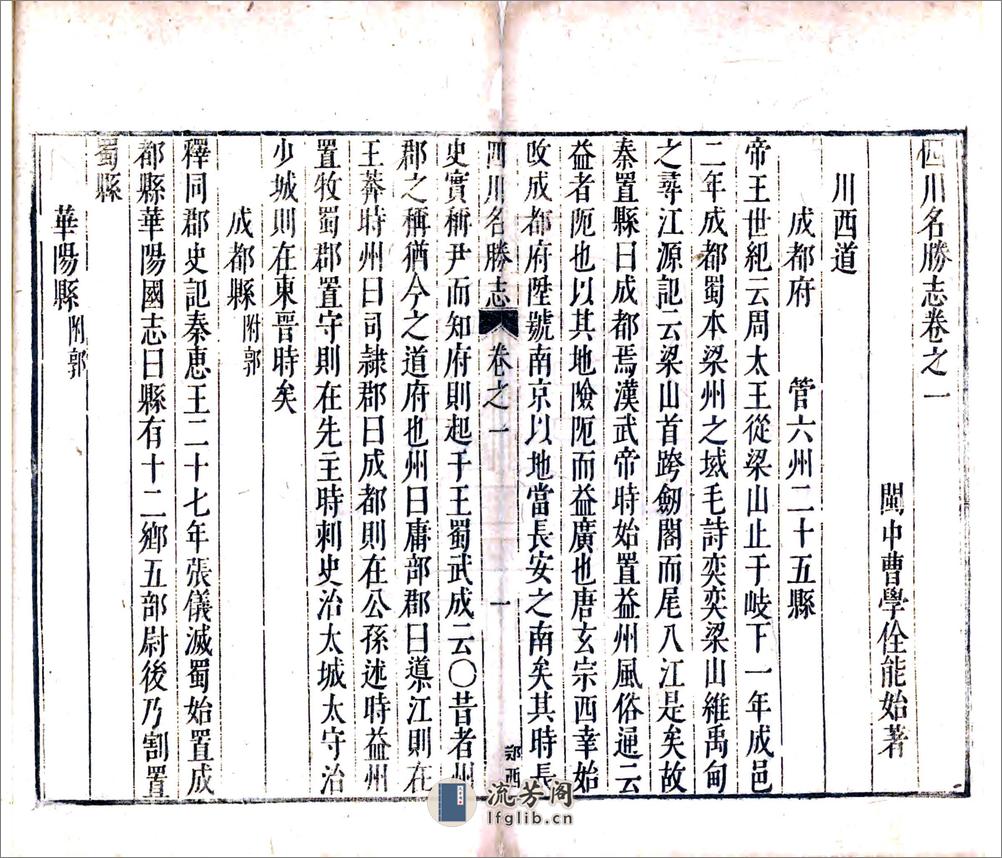 四川名勝志卷之一
閩中曹學佺能始著
川西道
成都府　管六州二十五縣
帝王世紀云周太王從梁山止于岐下一年成邑
二年成都蜀本梁州之域毛詩奕奕梁山維禹甸
之尋江源記云梁山首跨劒閣而尾八江是矣故
秦置縣曰成都焉漢武帝時始置益州風俗通云
益者阨也以其地險阨而益廣也唐玄宗西幸始
改成都府陞號南京以地當長安之南矣其時長
四川名勝志　卷之一　一　郊西
史實稱尹而知府則起于王蜀武成云〇昔者州
郡之稱猶今之道府也州曰庸部郡曰導江則在
王莽時州曰司隸郡曰成都則在公孫述時益州
置牧蜀郡置守則在先主時刺史治太城太守治
少城則在東晉時矣
成都縣附郭
釋同郡史記秦惠王二十七年張儀滅蜀始置成
都縣華陽國志曰縣有十二鄉五部尉後乃割置
蜀縣
華陽縣附郭
流芳閣
lfglib.cn